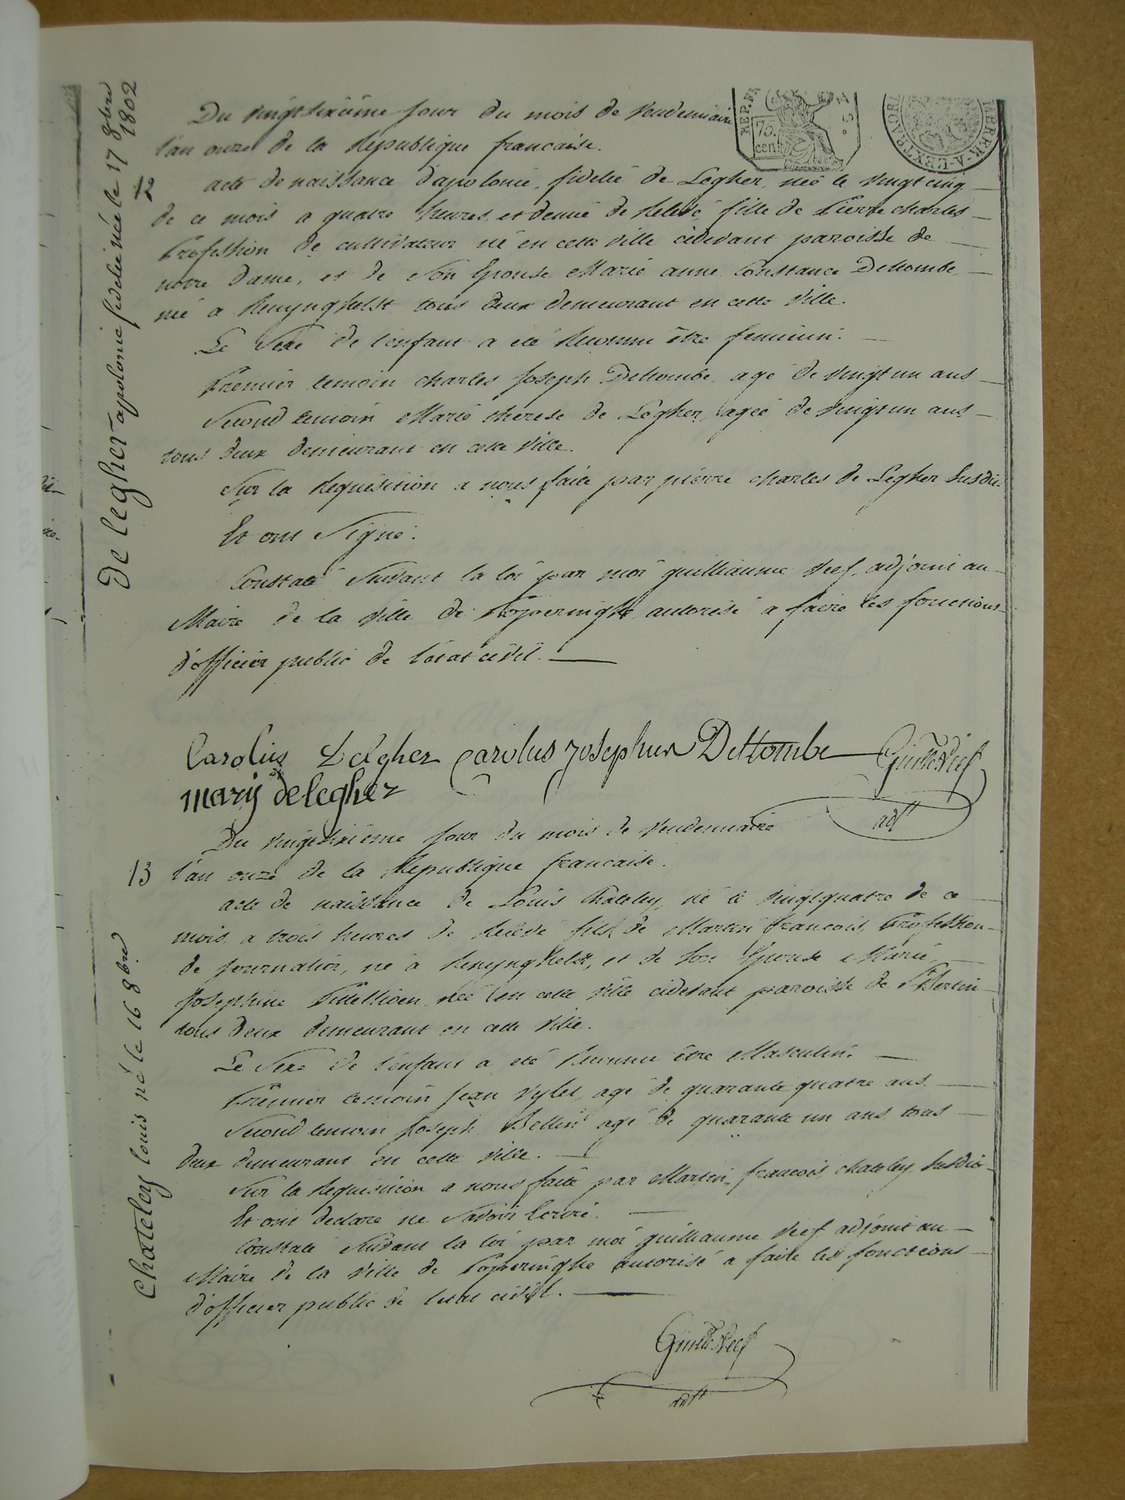 Du vingtsixième jour du mois de vendemiaire
l'an onze de la Republique francaise.
12 acte de naissance d'apolonie fidelié de Legher, neé le vingt cinq
de ce mois a quatre heures et demie de Relevé fille de Pierre charles
Profession de cultivateur né en cette ville cidevant paroisse de
notre Dame, et de Son Epouse Marie anne Constance Deltombe
né a Renynghelst tous deux demeurant en cette ville.
Le Sexe de l'enfant a été Reconnu être feminin.
Premier temoin charles Joseph Deltombe agé de vingt un ans
Second temoin Marie therese de Legher, ageé de vingt un ans
tous deux demeurant en cette ville.
Sur la Requisition a nous faite par pierre charles de Legher Susdit
Et ont Signé.
Constaté Suivant la loi par moi guilliaume Neef adjoint au
Maire de la ville de Poperinghe autorisé a faire les fonctions
d'officier public de l'état civil.
de legher apolonie fidelie née le 17 8bre 1802
REP. FRA
75. cent
Carolus Delgher Carolus Josephus Deltombe
marij de legher
adjt
Du vingtsixième jour du mois de vendemiaire
13 l'an onze de la Republique francaise.
acte de naissance de Louis chateley, né le vingt quatre de ce
mois a trois heures de Relevé fils de Martin francois, Profession
de journalier, né à Renynghelst, et de Son Epouse Marie
Josephine neé en cette ville cidevant paroisse de St Bertin
tous deux demeurant en cette ville.
Le Sexe de l'enfant a été Reconnu être Masculin.
Premier temoin Jean agé de quarante quatre ans
Second temoin Joseph agé de quarante un ans tous
deux demeurant en cette ville.
Sur la Requisition a nous faite par Martin francois chateley Susdit
Et ont declaré ne Savoir Ecrire.
Constaté Suivant la loi par moi guilliaume Neef adjoint au
Maire de la ville de Poperinghe autorisé a faire les fonctions
d'officier public de l'etat civil.
Chateley louis né le 16 8bre
adjt